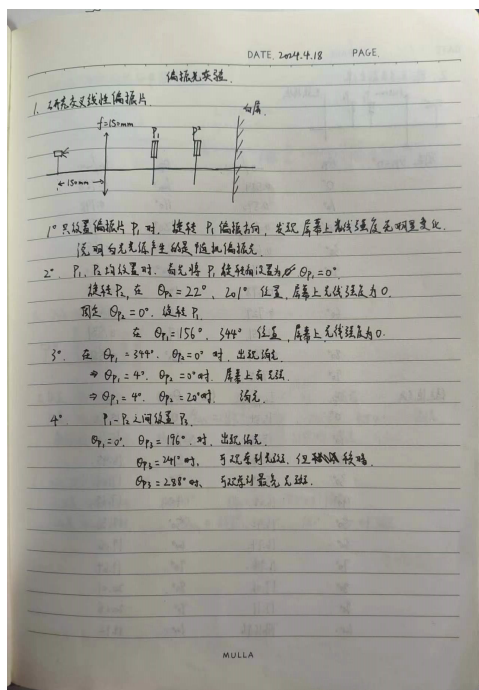 DATE. 2024.4.18 PAGE.
偏振光实验.
1. 研究交叉线性偏振片.
f=150mm
P₁
P₂
白屏.
←150mm→
1° 只放置偏振片 P₁ 时. 旋转 P₁ 偏振方向, 发现屏幕上光线强度无明显变化.
说明白光光源产生的是随机偏振光.
2° P₁, P₂ 均放置时. 首先将 P₁ 旋转角设置为 θp₁=0°.
旋转 P₂, 在 θp₂=22°、201° 位置, 屏幕上光线强度为0.
固定 θp₂=0°. 旋转 P₁.
在 θp₁=156°、344° 位置, 屏幕上光线强度为0.
3° 在 θp₁=344° θp₂=0° 时. 出现消光
⇒ θp₁=4°. θp₂=0°时. 屏幕上有光强.
⇒ θp₁=4°. θp₂=20°时. 消光.
4° P₁-P₂ 之间放置 P₃.
θp₁=0°. θp₃=196°. 时. 出现消光.
θp₃=241°时, 可观察到光斑. 但 较暗.
θp₃=288°时、可观察到最亮光斑.
MULLA